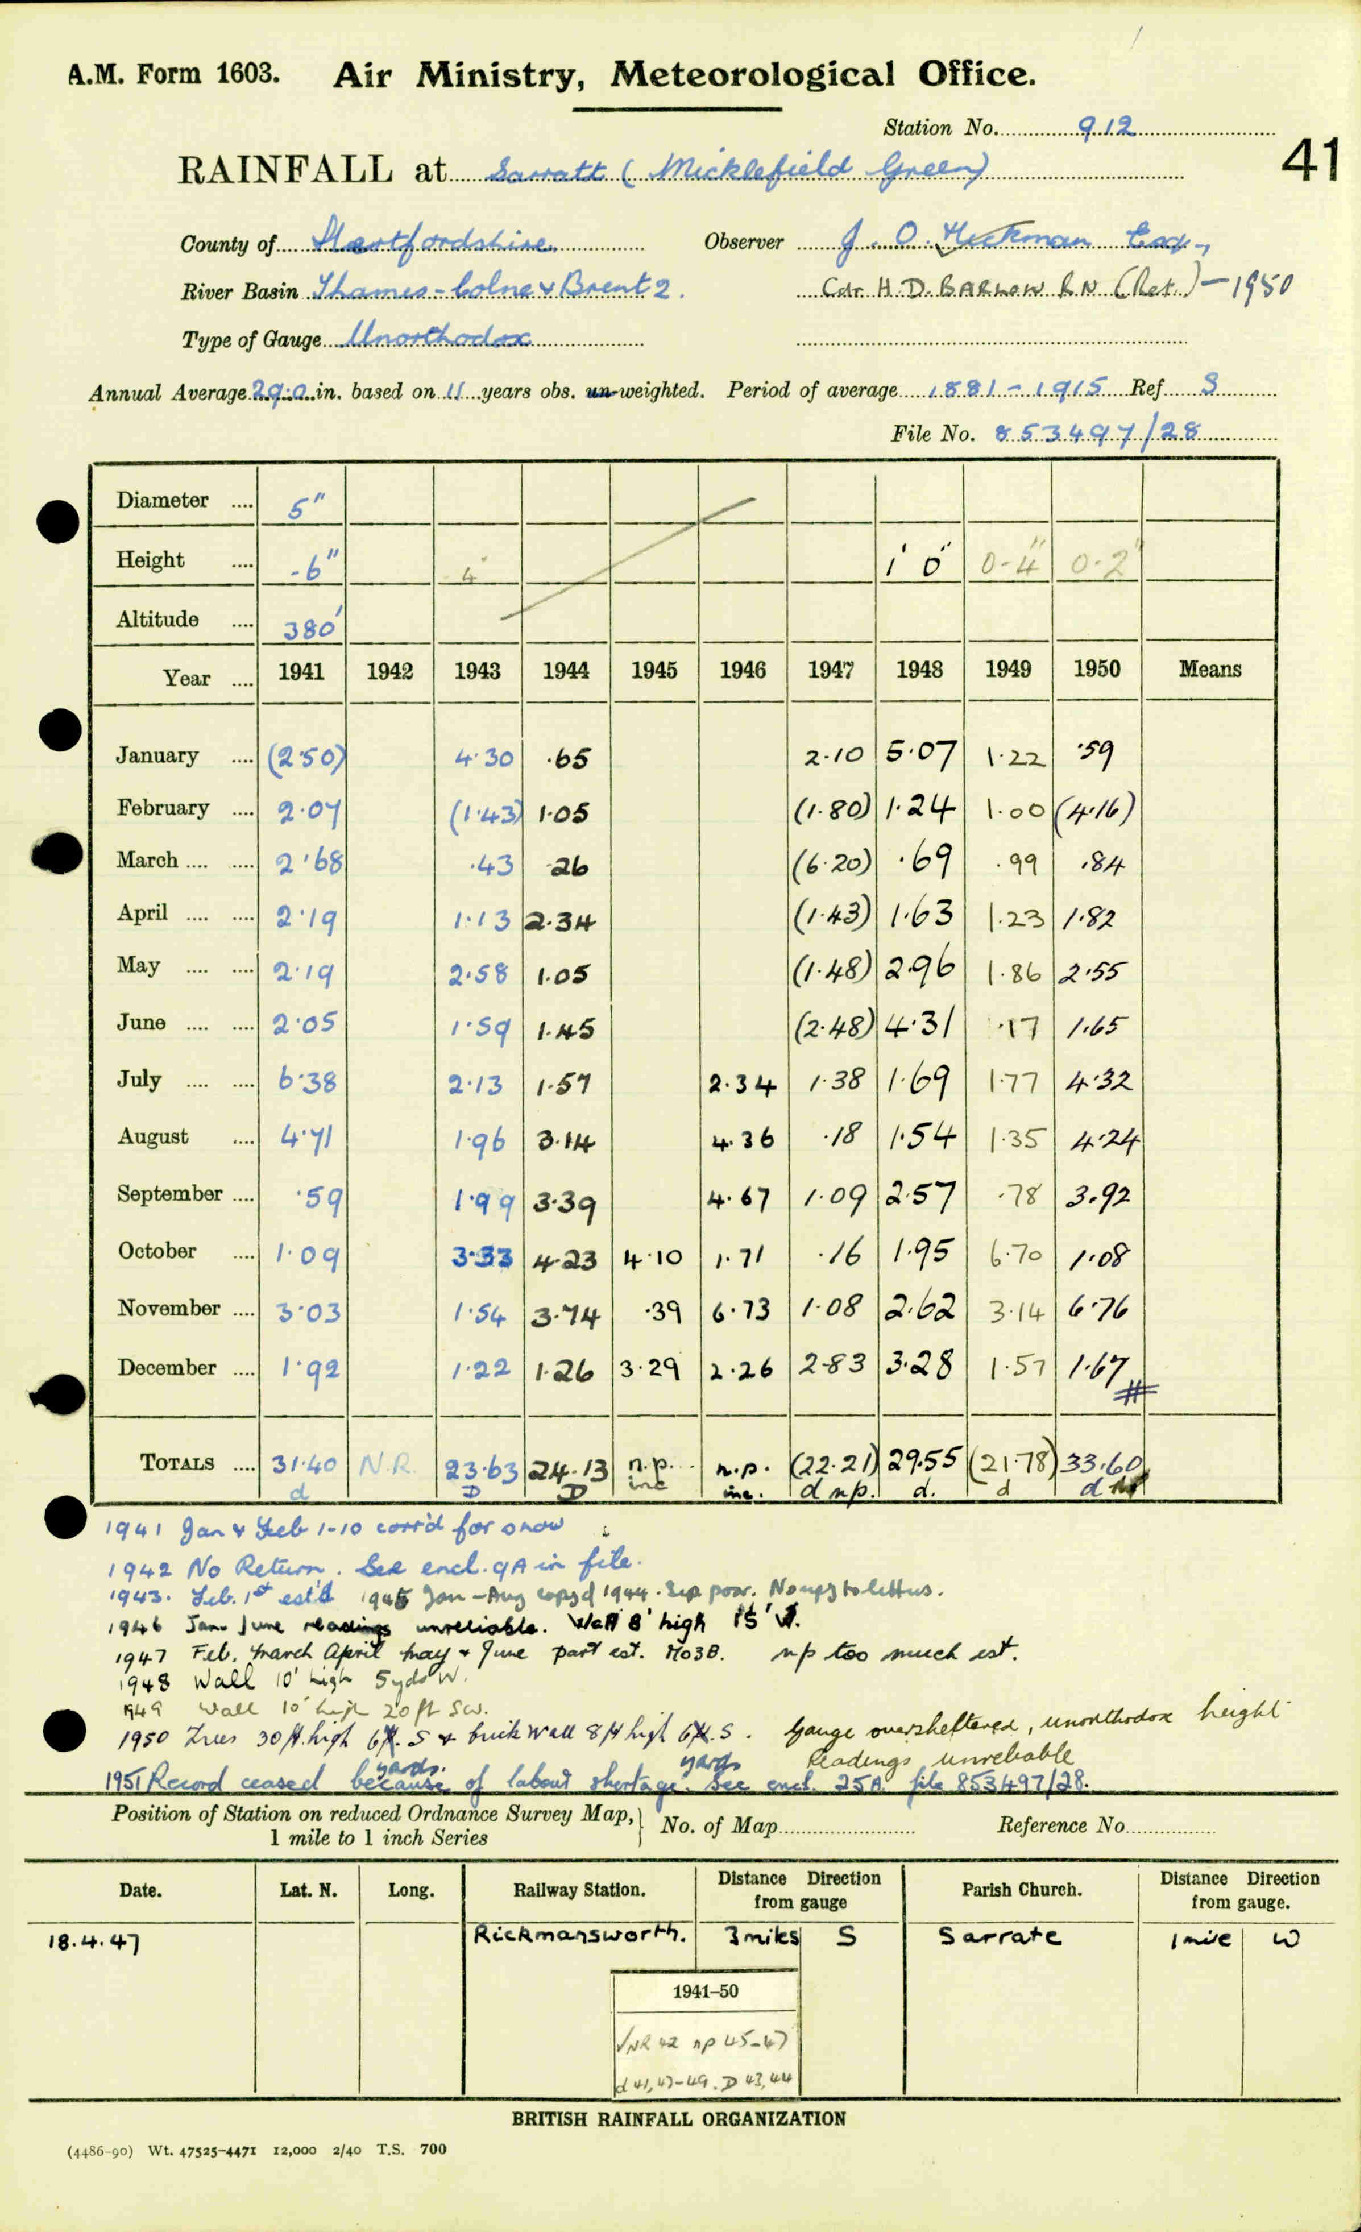 A.M. Form 1603. Air Ministry, Meteorological Office.
Station No. 912
41
RAINFALL at Sarratt (Micklefield Green)
County of Hertfordshire Observer J. O. Hickman Esq.,
River Basin Thames-Colne & Brent 2. Cdr. H.D. BARLOW RN (Ret.) - 1950
Type of Gauge Unorthodox
Annual Average 29.0 in. based on 11 years obs. un-weighted. Period of average 1881-1915 Ref S
File No. 853497/28
Diameter .... 5"
Height .... -6" 4" 1' 0" 0-4" 0-2"
Altitude .... 380'
Year .... 1941 1942 1943 1944 1945 1946 1947 1948 1949 1950 Means
January .... (2.50) 4.30 .65 2.10 5.07 1.22 .59
February .... 2.07 (1.43) 1.05 (1.80) 1.24 1.00 (4.16)
March .... .... 2.68 .43 .26 (6.20) .69 .99 .84
April .... .... 2.19 1.13 2.34 (1.43) 1.63 1.23 1.82
May .... .... 2.19 2.58 1.05 (1.48) 2.96 1.86 2.55
June .... .... 2.05 1.59 1.45 (2.48) 4.31 .17 1.65
July .... .... 6.38 2.13 1.57 2.34 1.38 1.69 1.77 4.32
August .... 4.71 1.96 3.14 4.36 .18 1.54 1.35 4.24
September .... .59 1.99 3.39 4.67 1.09 2.57 .78 3.92
October .... 1.09 3.33 4.23 4.10 1.71 .16 1.95 6.70 1.08
November .... 3.03 1.54 3.74 .39 6.73 1.08 2.62 3.14 6.76
December .... 1.92 1.22 1.26 3.29 2.26 2.83 3.28 1.57 1.67
#
TOTALS .... 31.40 N.R. 23.63 24.13 n.p. n.p. (22.21) 29.55 (21.78) 33.60
d D D inc inc. d n.p. d. d d
1941 Jan & Feb 1-10 corr'd for snow
1942 No Return. See encl. 9A in file.
1943. Feb. 1st est'd 1945 Jan-Aug copy'd 1944. Sep poor.
1946 Jan. June readings unreliable. Wall 8' high 15'
1947 Feb. March April May & June part est. MO3B. np too much est.
1948 Wall 10' high 5yds W.
1949 Wall 10' high 20ft SW.
1950 Trees 30 ft. high 6 ft. S & brick wall 8ft high 6 ft. S. Gauge oversheltered, unorthodox height
yards. yards Readings unreliable
1951 Record ceased because of labour shortage. See encl. 25A file 853497/28.
Position of Station on reduced Ordnance Survey Map, } No. of Map Reference No.
1 mile to 1 inch Series
Date. Lat. N. Long. Railway Station. Distance Direction from gauge Parish Church. Distance Direction from gauge.
18.4.47 Rickmansworth. 3 miles S Sarrate 1 mile W
1941-50
√NR 42 np 45-47
d 41,47-49. D 43,44
BRITISH RAINFALL ORGANIZATION
(4486-90) Wt. 47525-4471 12,000 2/40 T.S. 700